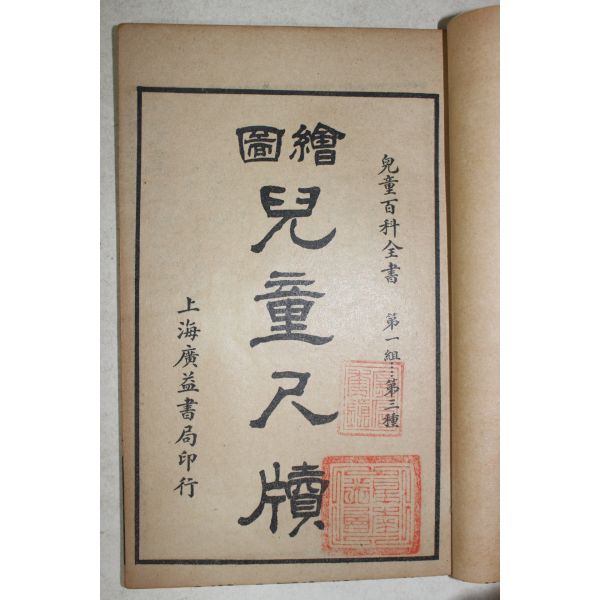 兒童百科全書 第一組…第三種
繪圖
兒童尺牘
上海廣益書局印行